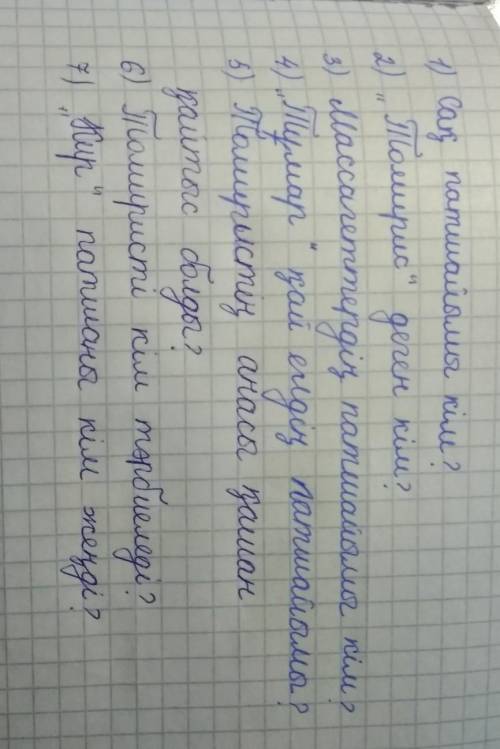 1) Сақ патшайымы кім?
2) „Томирис" деген кім?
3) Массагеттердің патшайымы кім?
4) „Тұмар" қай елдің патшайымы?
5) Томиристің анасы қашан
қайтыс болды?
6) Томиристі кім тәрбиеледі?
7) „Кир" патшаны кім жеңді?